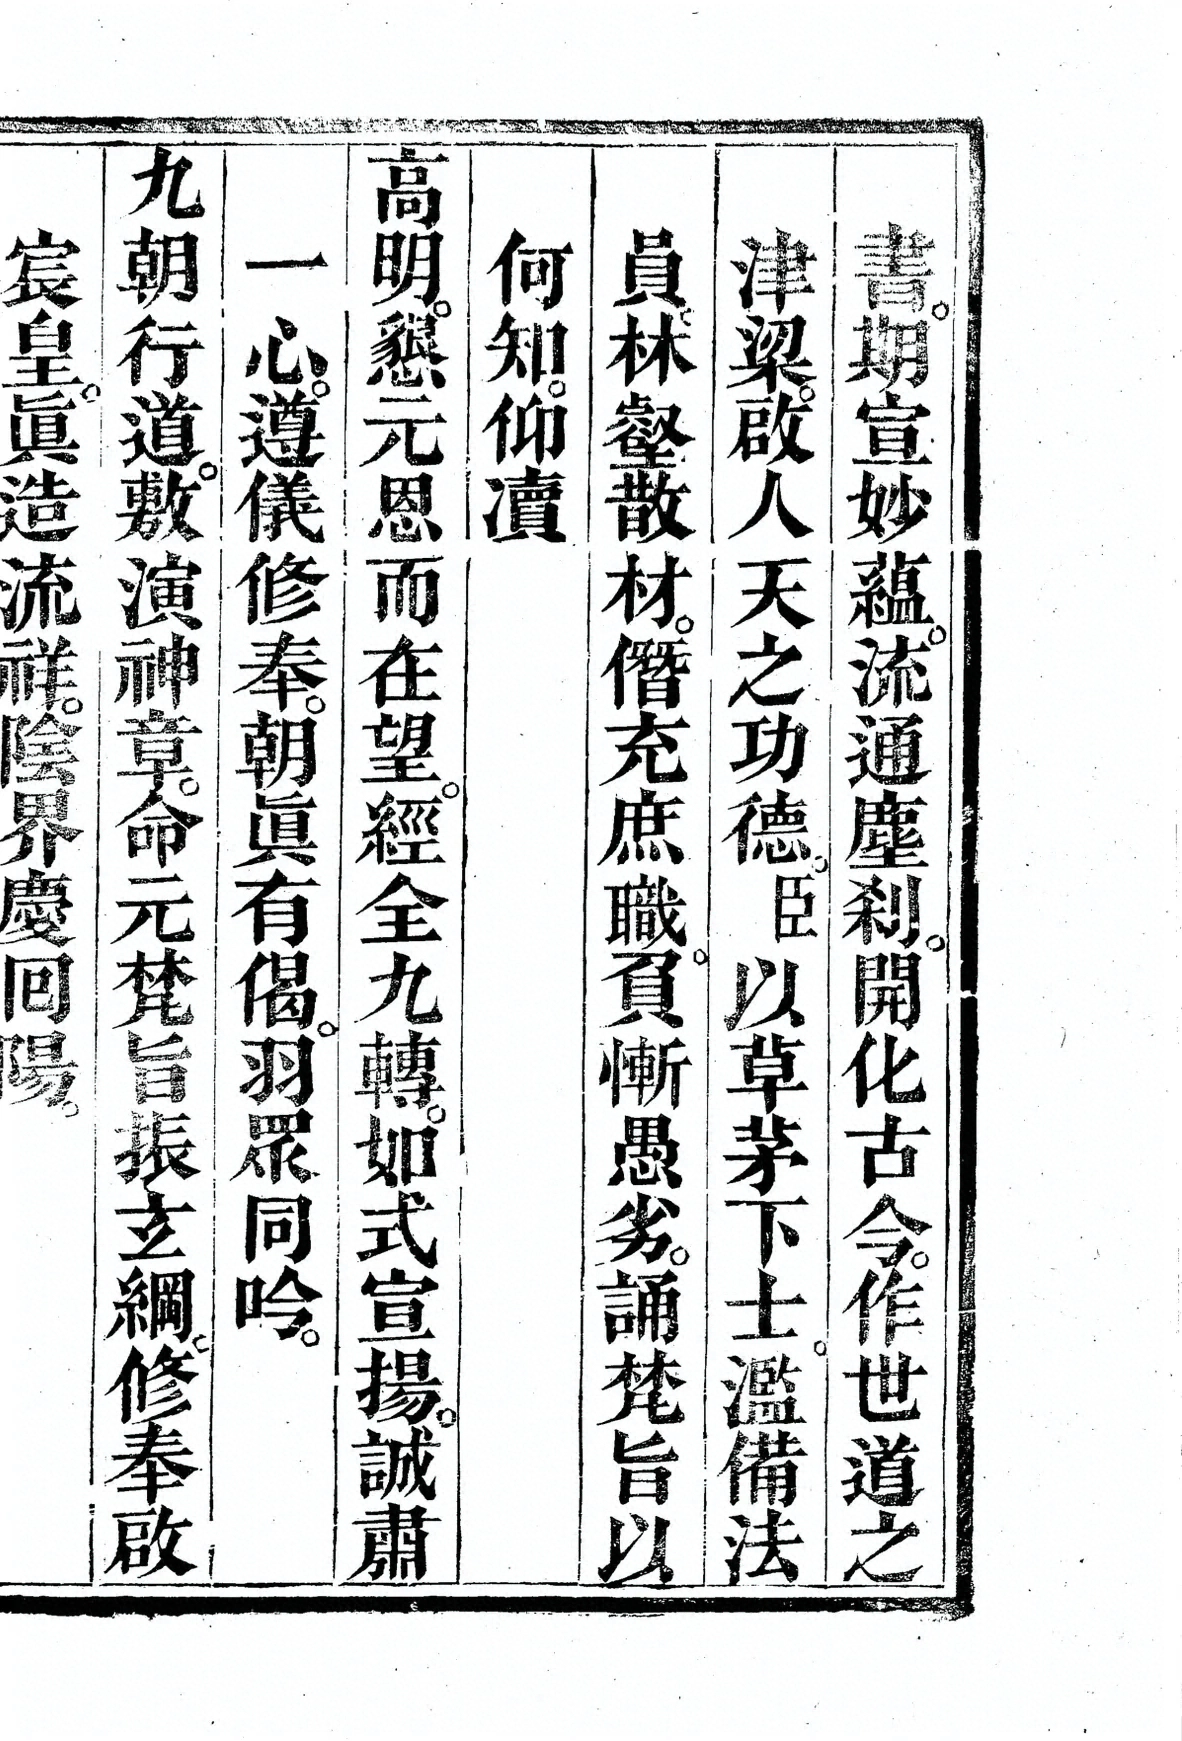 書。期宣妙蘊。流通塵剎。開化古今。作世道之
津梁。啟人天之功德。臣以草茅下士。濫備法
員。林壑散材。僭充庶職。負慚愚劣。誦梵旨以
何知。仰瀆
高明。懇元恩而在望。經全九轉。如式宣揚。誠肅
一心。遵儀修奉。朝眞有偈。羽眾同吟。
九朝行道。敷演神章。命元梵旨振玄綱。修奉啟
宸皇。眞造流祥。陰界慶回陽。